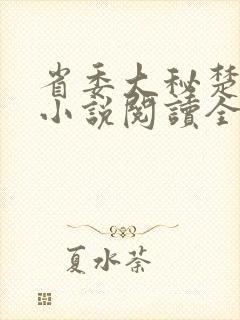 省委大秘楚
小説閱讀全
夏水荼